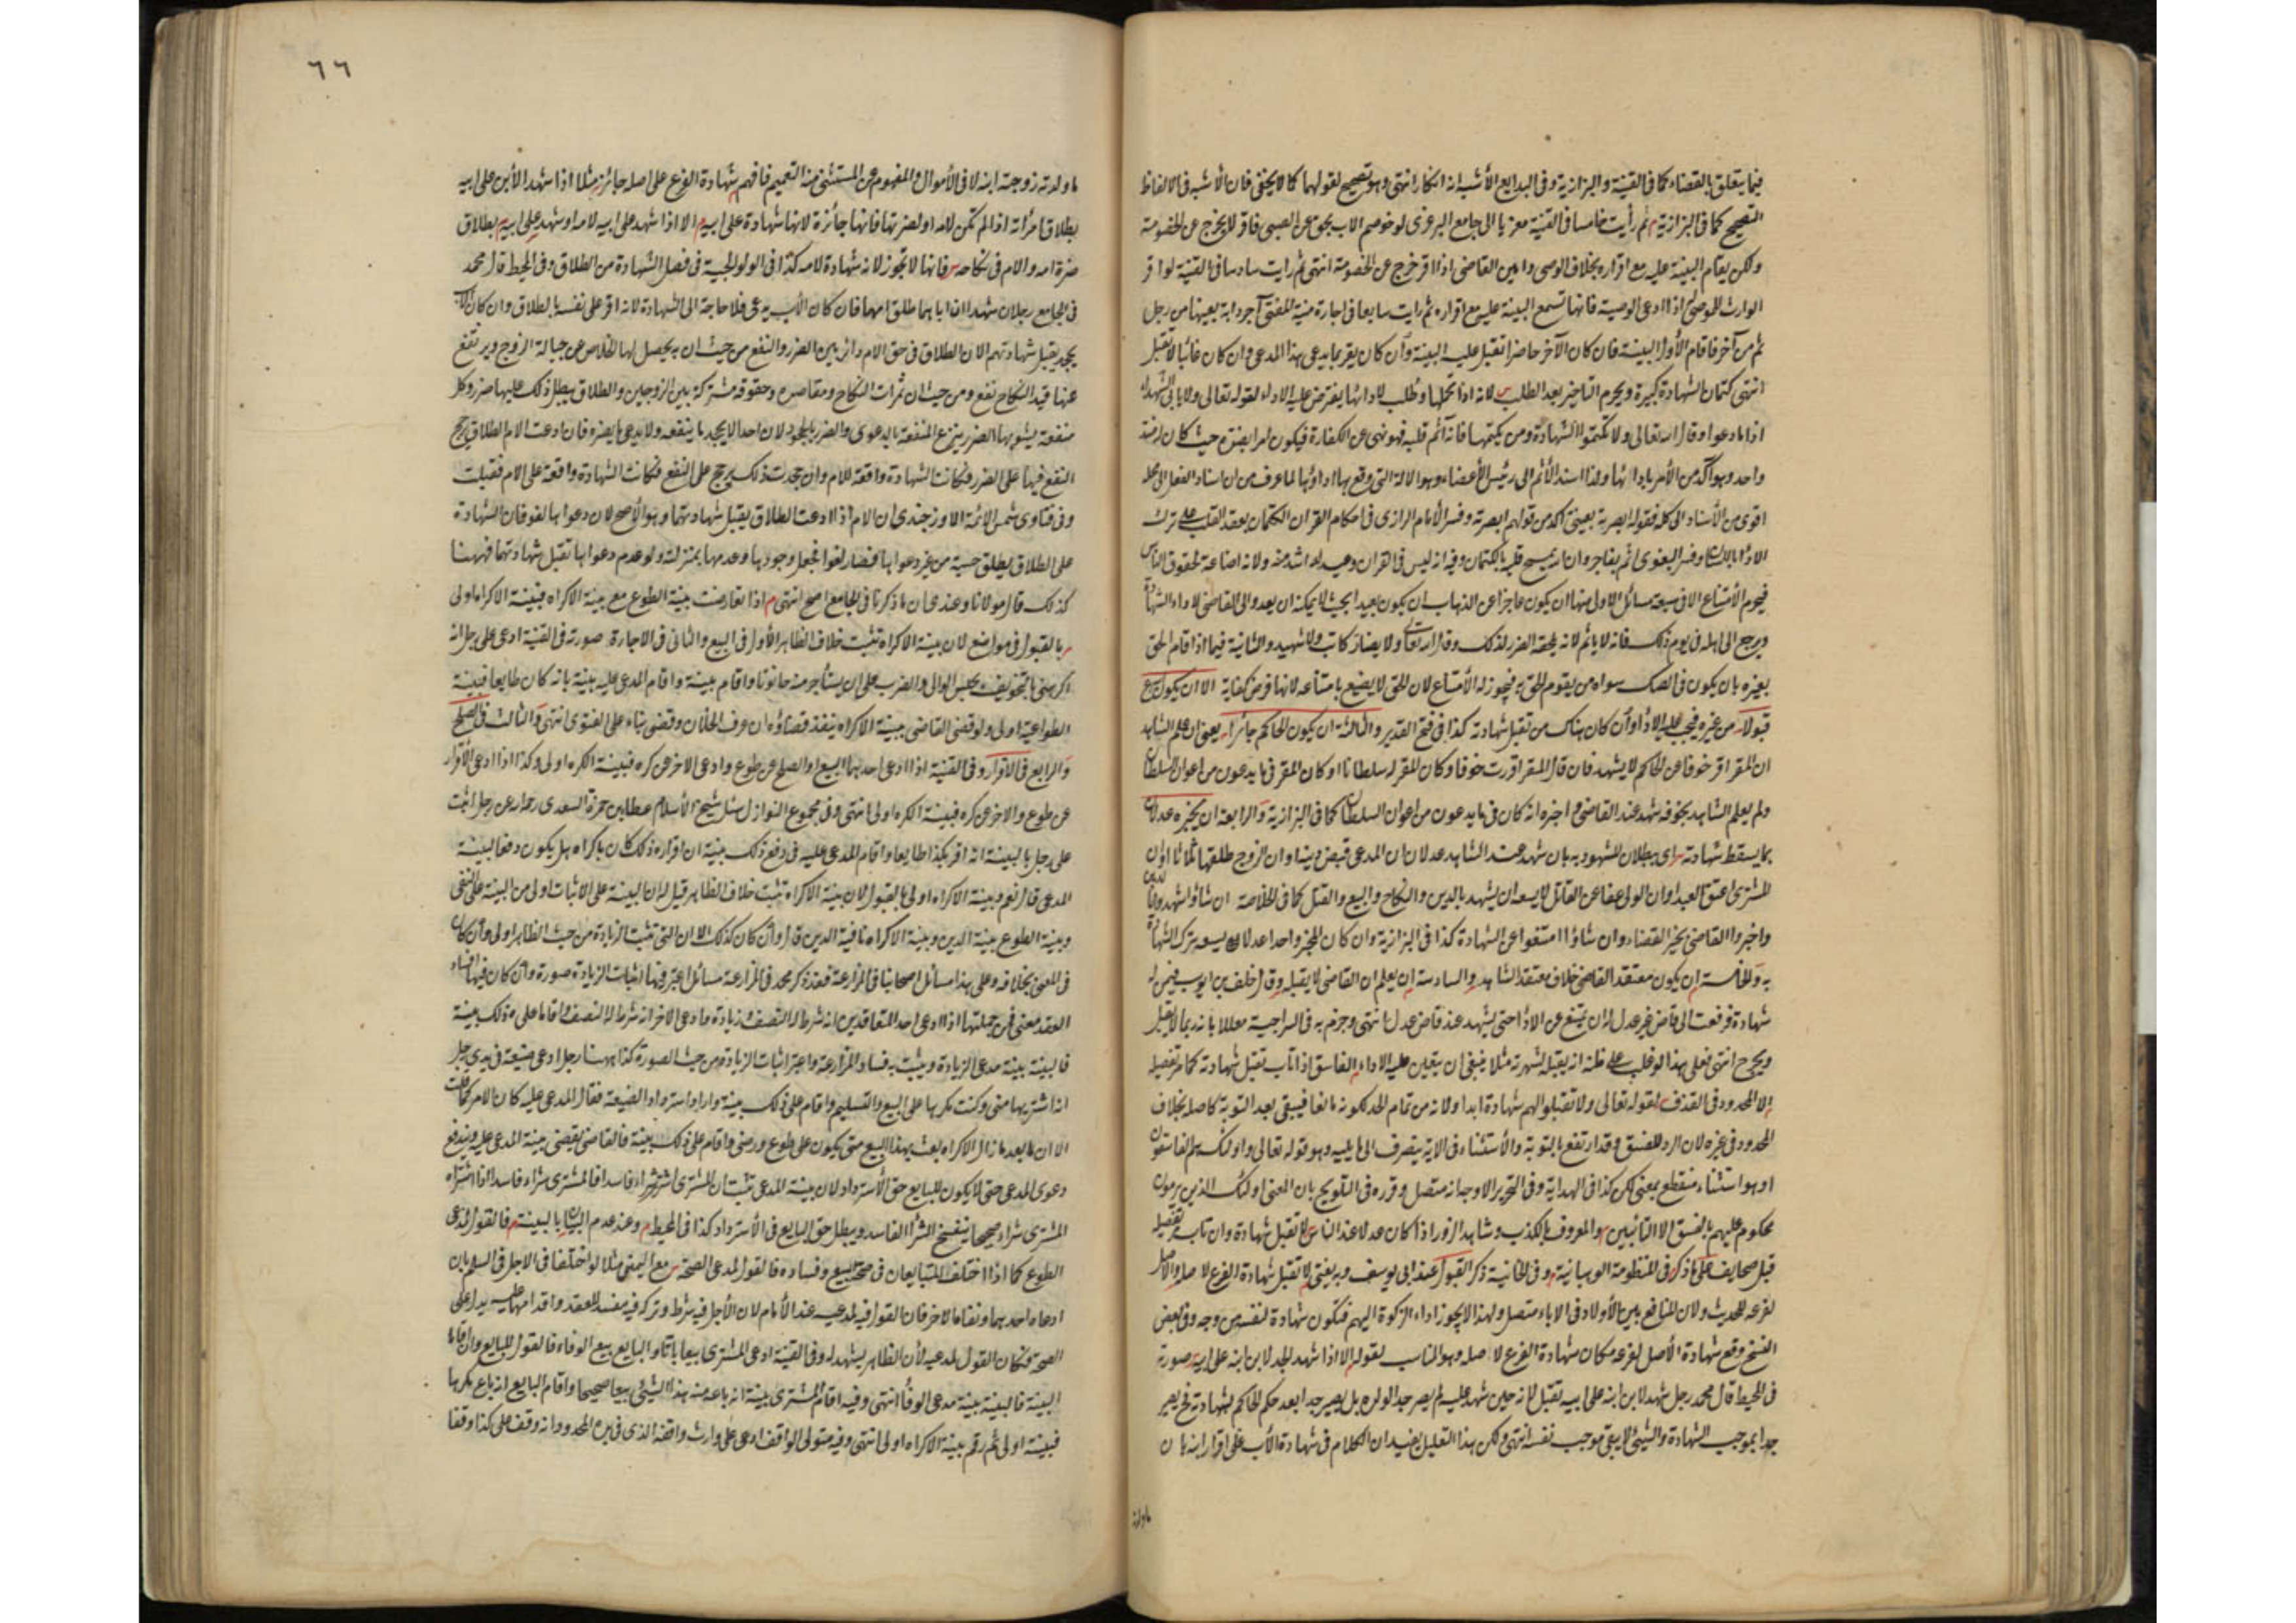 فيما يتعلق بالقضاء كما في القنية والبزازية وفي البدايع الأشبه انه انكار انتهى وهو تصحيح لقولهما كما لا يخفى فان الأشبه في الالفاظ
التصحيح كما في البزازية ثم رأيت خامسا في القنية معزيا الى جامع البزدوي لو خوصم الاب بحق عن الصبي فاقر لا يخرج عن الخصومة
ولكن يقام البينة عليه مع اقراره بخلاف الوصي وامين القاضي اذا اقر خرج عن الخصومة انتهى ثم رايت سادسا في القنية لو اقر
الوارث للموصى له اذا ادعى الوصية فانها تسمع البينة عليه مع اقراره ثم رايت سابعا في اجارة منية المفتي آجر دابة بعينها من رجل
ثم من آخر فاقام الأول البينة فان كان الآخر حاضرا تقبل عليه البينة وأن كان يقر بما يدعي هذا المدعي وان كان غائبا لا تقبل
انتهى كتمان الشهادة كبيرة ويحرم التاخير بعد الطلب لانه اذا تحملها وطلب لادائها يفترض عليه الاداء لقوله تعالى ولا يابى الشهداء
اذا ما دعوا وقال الله تعالى ولا تكتموا الشهادة ومن يكتمها فانه آثم قلبه فهو نهي عن الكفارة فيكون امرا بضده حيث كان له ضد
واحد وهو آكد من الأمر بادائها ولذا اسند الأثم الى رئيس الأعضاء وهو الالة التي وقع بها اداؤها لما عرف من ان اسناد الفعل الى محله
اقوى من الأسناد الى كله فقوله ابصرته بعيني آكد من قولهم ابصرته وفسر الأمام الرازي في احكام القران الكتمان بعقد القلب على ترك
الاداء باللسان وفسر البغوي آثم بفاجر وان الله يمسخ قلبه بالكتمان وفيه انه ليس في القران وعيد اشد منه ولانه اضاعة لحقوق الناس
فيحرم الأمتناع الا في سبعة مسائل الاولى منها ان يكون عاجزا عن الذهاب ان يكون بعيدا بحيث لا يمكنه ان يعدو الى القاضي لاداء الشهادة
ويرجع الى اهله في يوم ذلك فانه لا يأثم لانه يلحقه الضرر لذلك وقال الله تعالى ولا يضار كاتب ولا شهيد والثانية فيما اذا قام الحق
بغيره بان يكون في الصك سواه من يقوم الحق به فيجوز له الأمتناع لان الحق لا يضيع بامتناعه لانها فرض كفاية الا ان يكون اسرع
قبولا من غيره فيجب عليه الاداء وأن كان هناك من تقبل شهادته كذا في فتح القدير والثالثة ان يكون الحاكم جائرا يعني ان علم الشاهد
ان المقر اقر خوفا عن الحاكم لا يشهد فان قال المقر اقررت خوفا وكان المقر له سلطانا او كان المقر في يد عون من اعوان السلطان
ولم يعلم الشاهد بخوفه شهد عند القاضي واخبره انه كان في يد عون من اعوان السلطان كما في البزازية والرابعة ان يخبره عدلان
بما يسقط شهادته اي ببطلان المشهود به بان شهد عند الشاهد عدلان ان المدعي قبض دينه او ان الزوج طلقها ثلاثا او ان
المشتري اعتق العبد او ان الولي عفا عن القاتل لا يسعه ان يشهد بالدين والنكاح والبيع والقتل كما في الخلاصة ان شاؤا شهدوا بالدين
واخبروا القاضي بخبر القضاء وان شاؤا امتنعوا عن الشهادة كذا في البزازية وان كان المخبر واحدا عدلا لا يسعه ترك الشهادة
به والخامسة ان يكون معتقد القاضي خلاف معتقد الشاهد والسادسة ان يعلم ان القاضي لا يقبله وقال خلف بن ايوب فيمن له
شهادة فرفعت الى قاض غير عدل له ان يمتنع عن الاداء حتى يشهد عند قاض عدل انتهى وجزم به في السراجية معللا بانه ربما لا يقبل
ويجرح انتهى فعلى هذا لو غلب على ظنه انه يقبله لشهرته مثلا ينبغي ان يتعين عليه الاداء الفاسق اذا تاب تقبل شهادته كما مر تفصيله
الا المحدود في القذف لقوله تعالى ولا تقبلوا لهم شهادة ابدا ولانه من تمام الحد لكونه مانعا فيبقى بعد التوبة كاصله بخلاف
المحدود في غيره لان الرد للفسق وقد ارتفع بالتوبة والأستثناء في الاية ينصرف الى ما يليه وهو قوله تعالى واولئك هم الفاسقون
او هو استثناء منقطع بمعنى لكن كذا في الهداية وفي التحرير الاوجه انه متصل وقرره في التلويح بان المعنى اولئك الذين يرمون
محكوم عليهم بالفسق الا التائبين والمعروف بالكذب وشاهد الزور اذا كان عدلا عند الناس لا تقبل شهادته وان تاب تفصيله
قبل صحايف على ما ذكر في المنظومة الوهبانية وفي الخانية ذكر القبول عند ابي يوسف وبه يفتى لا تقبل شهادة الفرع لاصله والأصل
لفرعه للحديث ولان المنافع بين الأولاد في الاباء متصل ولهذا لا يجوز اداء الزكوة اليهم فتكون شهادة لنفسه من وجه وفي بعض
النسخ وقع شهادة الأصل لفرعه مكان شهادة الفرع لاصله وهو المناسب لقوله الا اذا شهد الجد لابن ابنه على ابيه صورته
في المحيط قال محمد رجل شهد لابن ابنه على ابيه تقبل لانه حين شهد عليه لم يصر جدا لولده بل يصير جدا بعد حكم الحاكم بشهادته فح يصير
جدا بموجب الشهادة والشئ لا ينفي موجب نفسه انتهى ولكن هذا التعليل يفيد ان الكلام في شهادة الأب على اقرار ابنه بان
ما ولدته
٦٦
ما ولدته زوجته ابنه لا في الأموال والمفهوم من المستثنى منه التعميم فافهم شهادة الفرع على اصله جائزة مثلا اذا شهد الأبن على ابيه
بطلاق امرأته اذا لم تكن لامه او لضرتها فانها جائزة لانها شهادة على ابيه الا اذا شهد على ابيه لامه او شهد على ابيه بطلاق
ضرة امه والام في نكاحه فانها لا تجوز لانه شهادة لامه كذا في الولوالجية في فصل الشهادة من الطلاق وفي المحيط قال محمد
في الجامع رجلان شهدا ان اباهما طلق امهما فان كان الأب يدعي فلا حاجة الى الشهادة لانه اقر على نفسه بالطلاق وان كان الاب
يجحد يقبل شهادتهم الا ان الطلاق في حق الام دائر بين الضرر والنفع من حيث ان به يحصل لها الخلاص عن حبالة الزوج ويرتفع
عنها قيد النكاح نفع ومن حيث ان ثمرات النكاح ومقاصده وحقوقه مشتركة بين الزوجين والطلاق يبطل ذلك عليها ضرر وكل
منفعة يشوبها الضرر يترجح المنفعة بالدعوى والضرر بالجحود لان احدا لا يجحد ما ينفعه ولا يدعي ما يضره فان ادعت الام الطلاق يرجح
النفع فيها على الضرر فكانت الشهادة واقعة للام وان جحدت ذلك يرجح على النفع فكانت الشهادة واقعة على الام فقبلت
وفي فتاوى شمس الائمة الاوزجندي ان الام اذا ادعت الطلاق يقبل شهادتهما وهو الأصح لان دعواها لغو فان الشهادة
على الطلاق يطلق حسبة من غير دعواها فصار لغوا فجعل وجودها وعدمها بمنزلة ولو عدم دعواها تقبل شهادتهما فههنا
كذلك قال مولانا وعندي ان ما ذكرنا في الجامع اصح انتهى اذا تعارضت بينة الطوع مع بينة الاكراه فبينة الاكراه اولى
بالقبول في مواضع لان بينة الاكراه تثبت خلاف الظاهر الأول في البيع والثاني في الاجارة صورته في القنية ادعى على رجل انه
اكرهني بالتخويف بحبس الوالي والضرب على ان يستأجر منه حانوتا واقام بينة واقام المدعى عليه بينة بانه كان طايعا فبينة
الطواعية اولى ولو قضى القاضي ببينة الاكراه ينفذ قضاؤه ان عرف الخلاف وقضى بناء على الفتوى انتهى والثالث في الصلح
والرابع في الاقرار وفي القنية اذا ادعى احدهما البيع او الصلح عن طوع وادعى الاخر عن كره فبينة الكره اولى وكذا اذا ادعى الأقرار
عن طوع والاخر عن كره فبينة الكره اولى انتهى وفي مجموع النوازل سئل شيخ الأسلام عطا بن حمزة السعدي رحمه الله عن رجل اثبت
على رجل بالبينة انه اقر بكذا طايعا واقام المدعى عليه في دفع ذلك بينة ان اقراره ذلك كان باكراه هل يكون دفعا لبينة
المدعي قال نعم وبينة الاكراه اولى بالقبول لان بينة الاكراه تثبت خلاف الظاهر قيل له ان البينة على الاثبات اولى من البينة على النفي
وبينة الطوع بينة الدين وبينة الاكراه نافية الدين قال وأن كان كذلك الا ان التي تثبت الزيادة من حيث الظاهر اولى وأن كان
في المعنى بخلافه وعلى هذا مسائل اصحابنا في المزارعة فقد ذكر محمد في المزارعة مسائل اعتبر فيها اثبات الزيادة صورة وأن كان فيها افساد
العقد معنى فمن جملتها اذا ادعى احد المتعاقدين انه شرط له النصف وزيادة وادعى الاخر انه شرط له النصف واقاما على ذلك بينة
فالبينة بينة مدعي الزيادة ويثبت به فساد المزارعة واعتبر اثبات الزيادة من حيث الصورة كذا ههنا رجل ادعى ضيعة في يدي رجل
انه اشتريها مني وكنت مكرها على البيع والتسليم واقام على ذلك بينة واراد استرداد الضيعة فقال المدعى عليه كان الامر كما قلت
الا ان بعد ما زال الاكراه بعت بهذا البيع مني يكون على طوع ورضى واقام على ذلك بينة فالقاضي يقضي بينة المدعى عليه ويندفع
دعوى المدعي حتى لا يكون للبايع حق الأسترداد لان بينة المدعي تثبت ان المشتري اشترى شراء فاسدا فالمشتري شراء فاسدا اذا اشتراه
المشتري شراء صحيحا ينفسخ الشرأ الفاسد ويبطل حق البايع في الأسترداد كذا في المحيط وعند عدم البيان بالبينة فالقول لمدعي
الطوع كما اذا اختلف المتبايعان في صحة البيع وفساده فالقول لمدعي الصحة مع اليمين مثلا لو اختلفا في الاجل في السلم بان
ادعاه احدهما ونفاه الاخر فان القول فيه لمدعيه عند الأمام لان الأجل فيه شرط وتركه فيه مفسد للعقد واقدامهما عليه يدل على
الصحة فكان القول لمدعيه لأن الظاهر يشهد له وفي القنية ادعى المشتري بيعا باتا والبايع بيع الوفاء فالقول للبايع وان اقاما
البينة فالبينة بينة مدعي الوفأ انتهى وفيه اقام المشتري بينة انه باعه منه هذا الشئ بيعا صحيحا واقام البايع انه باع مكرها
فبينته اولى ثم رقم بينة الاكراه اولى انتهى وفيه متولي الواقف ادعى على وارث واقفه الذي في يده المحدود انه وقف على كذا وقفا